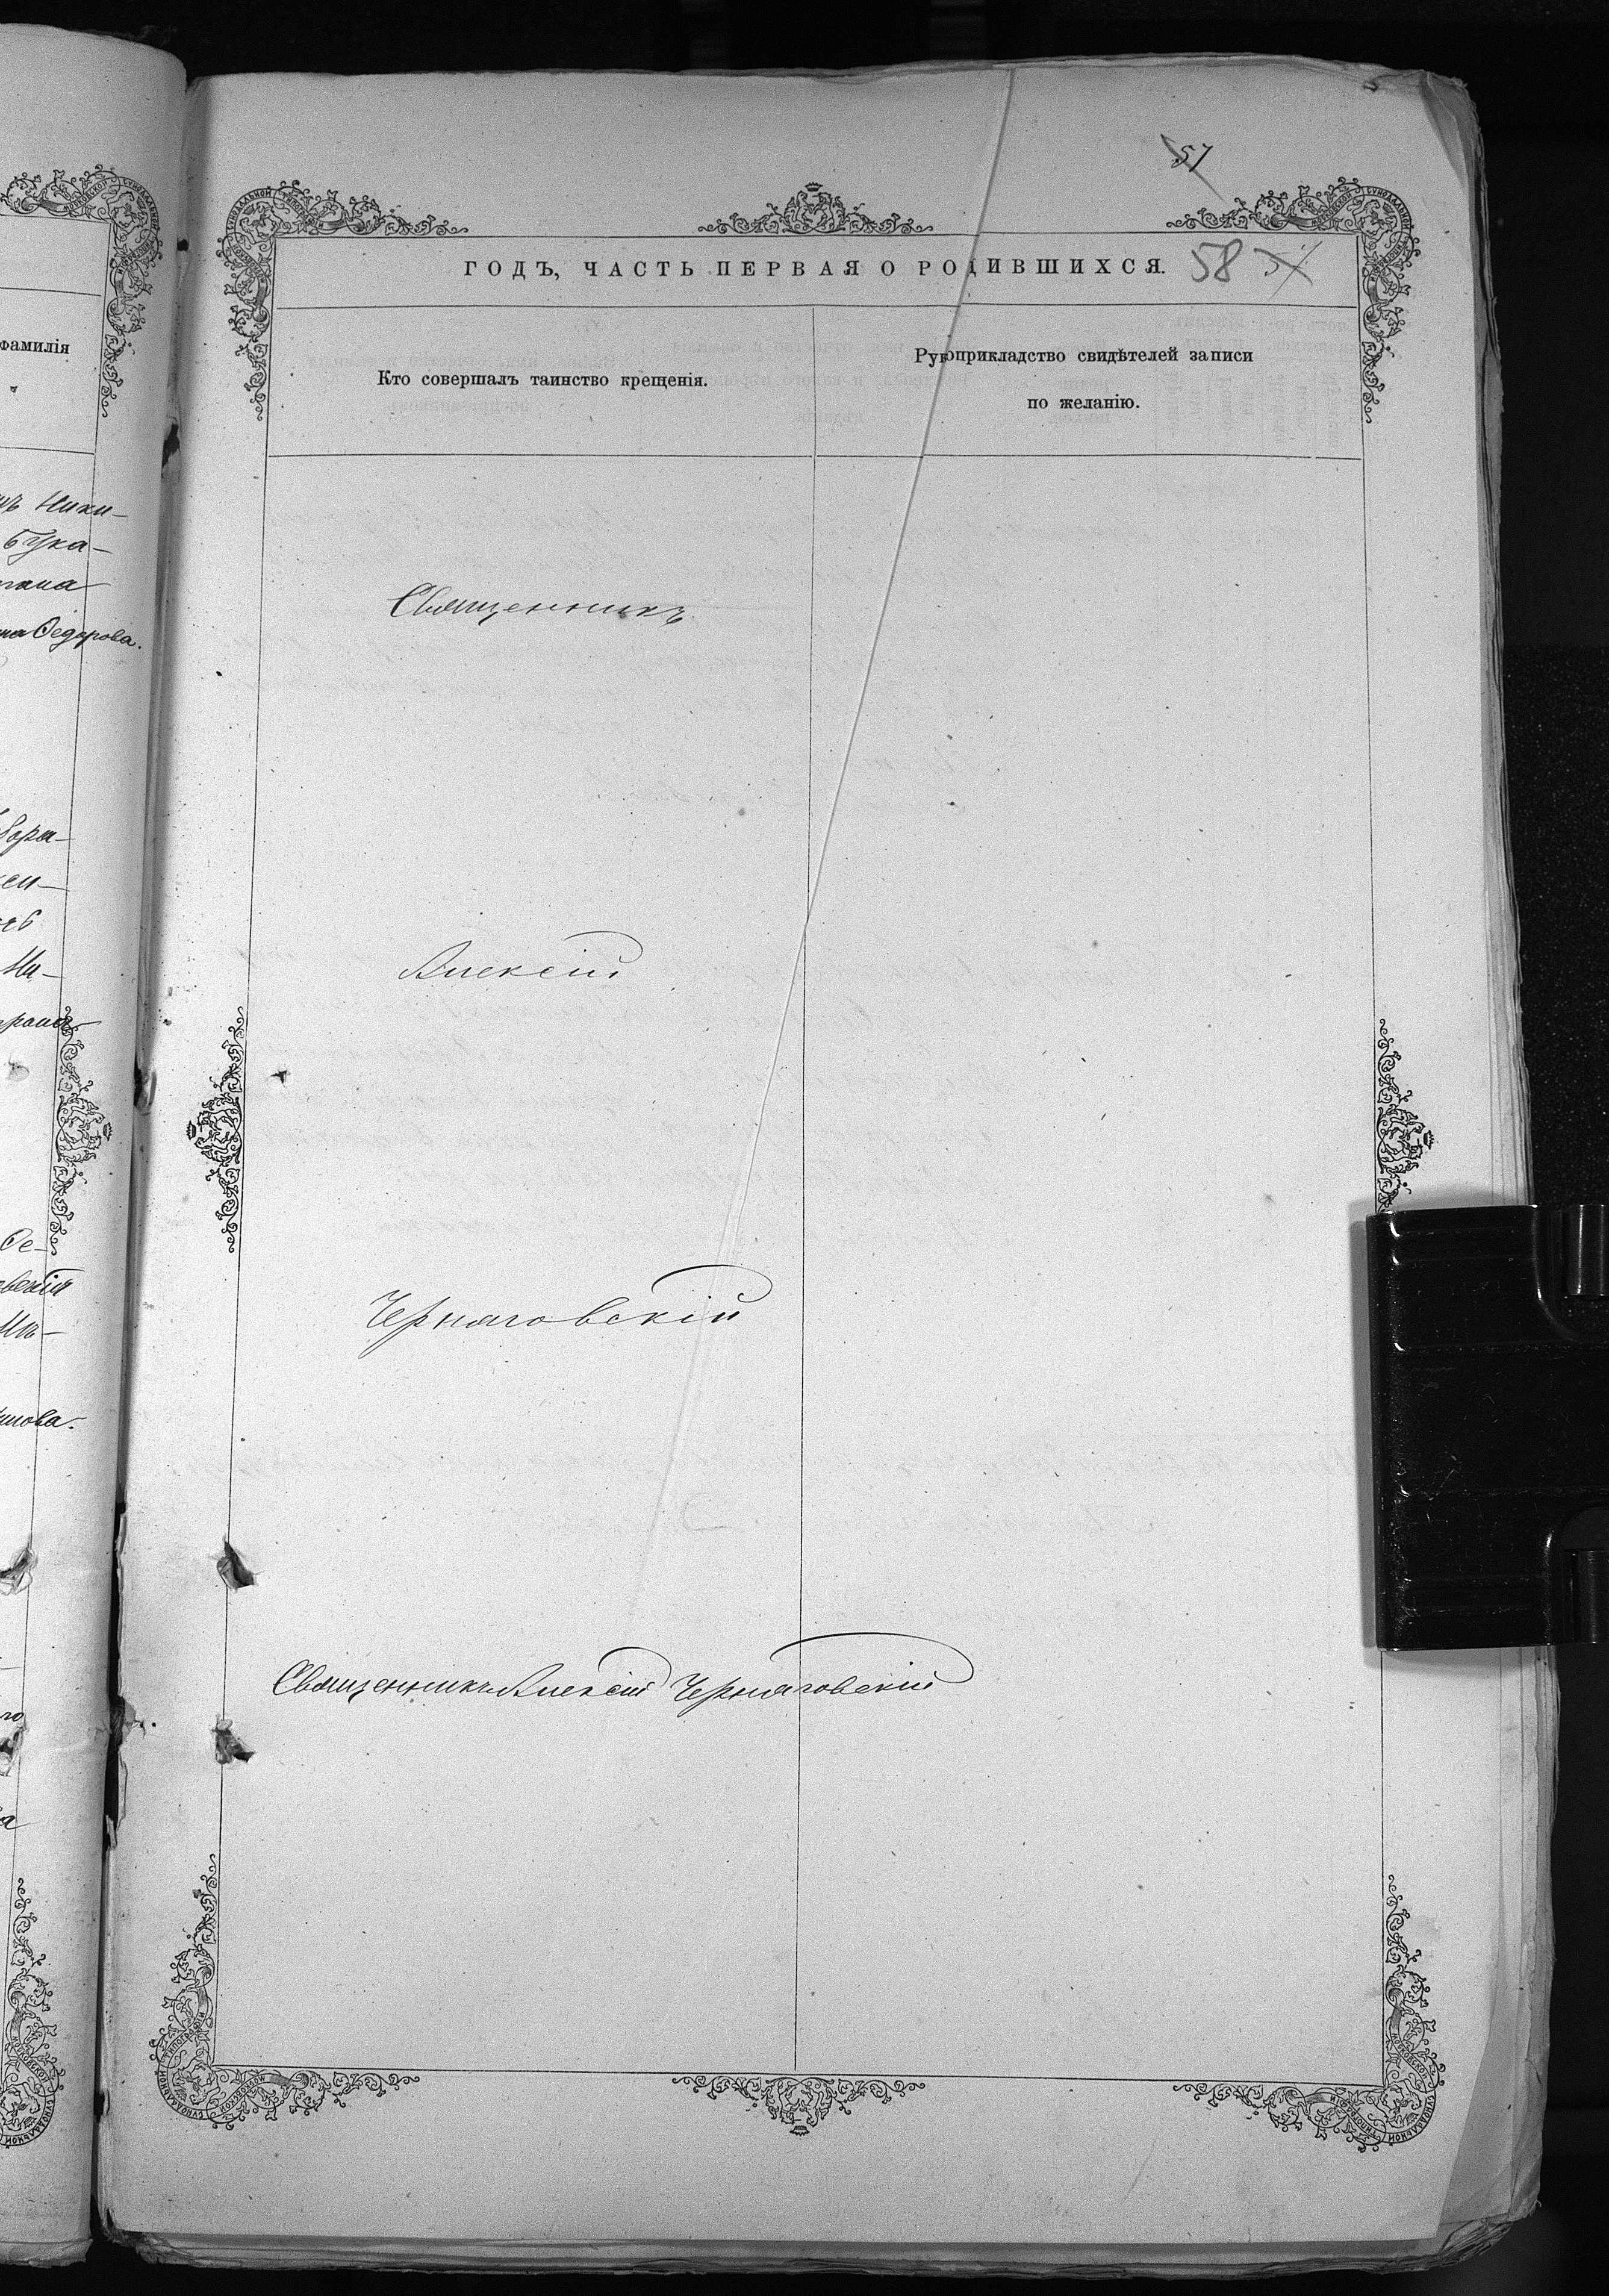 фамилія
Ники-
Бука-
на Федорова.
Фе-
57
ГОДЪ, ЧАСТЬ ПЕРВАЯ О РОДИВШИХСЯ. 58 57
Кто совершалъ таинство крещенія.
Рукоприкладство свидѣтелей записи
по желанію.
Священникъ
Алексій
Черняговскій
Священникъ Алексій Черняговскій